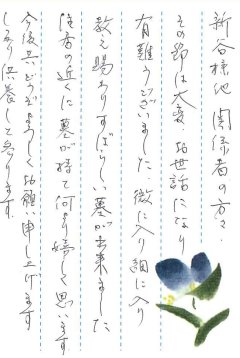 新谷様他 関係者の方々、
その節は大変、お世話になり
有難うございました、微に入り細に入り
教え賜わりすばらしい墓が出来ました
住居の近くに墓が持て何より嬉しく思います
今後共、どうぞよろしくお願い申し上げます
しっかり供養して参ります